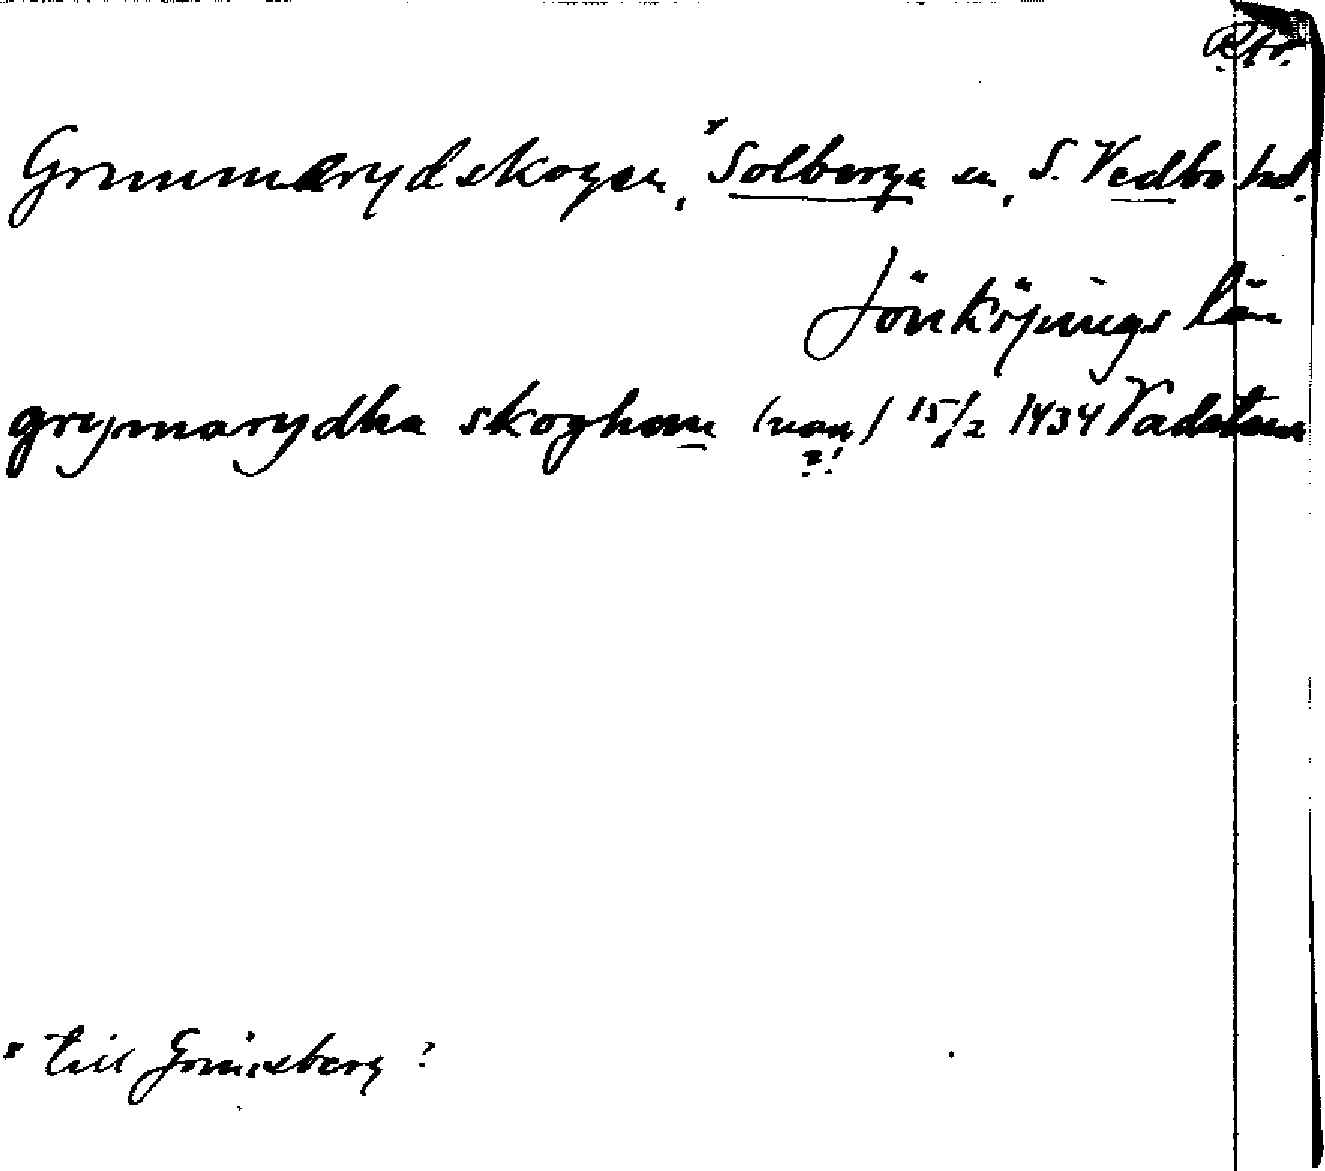 Rfr.
Grimmarydskogen, *Solberga sn, S. Vedbo hd.
Jönköpings län
grymarydha skoghom (von) 15/2 1434 Vadstena
?!
* till ?